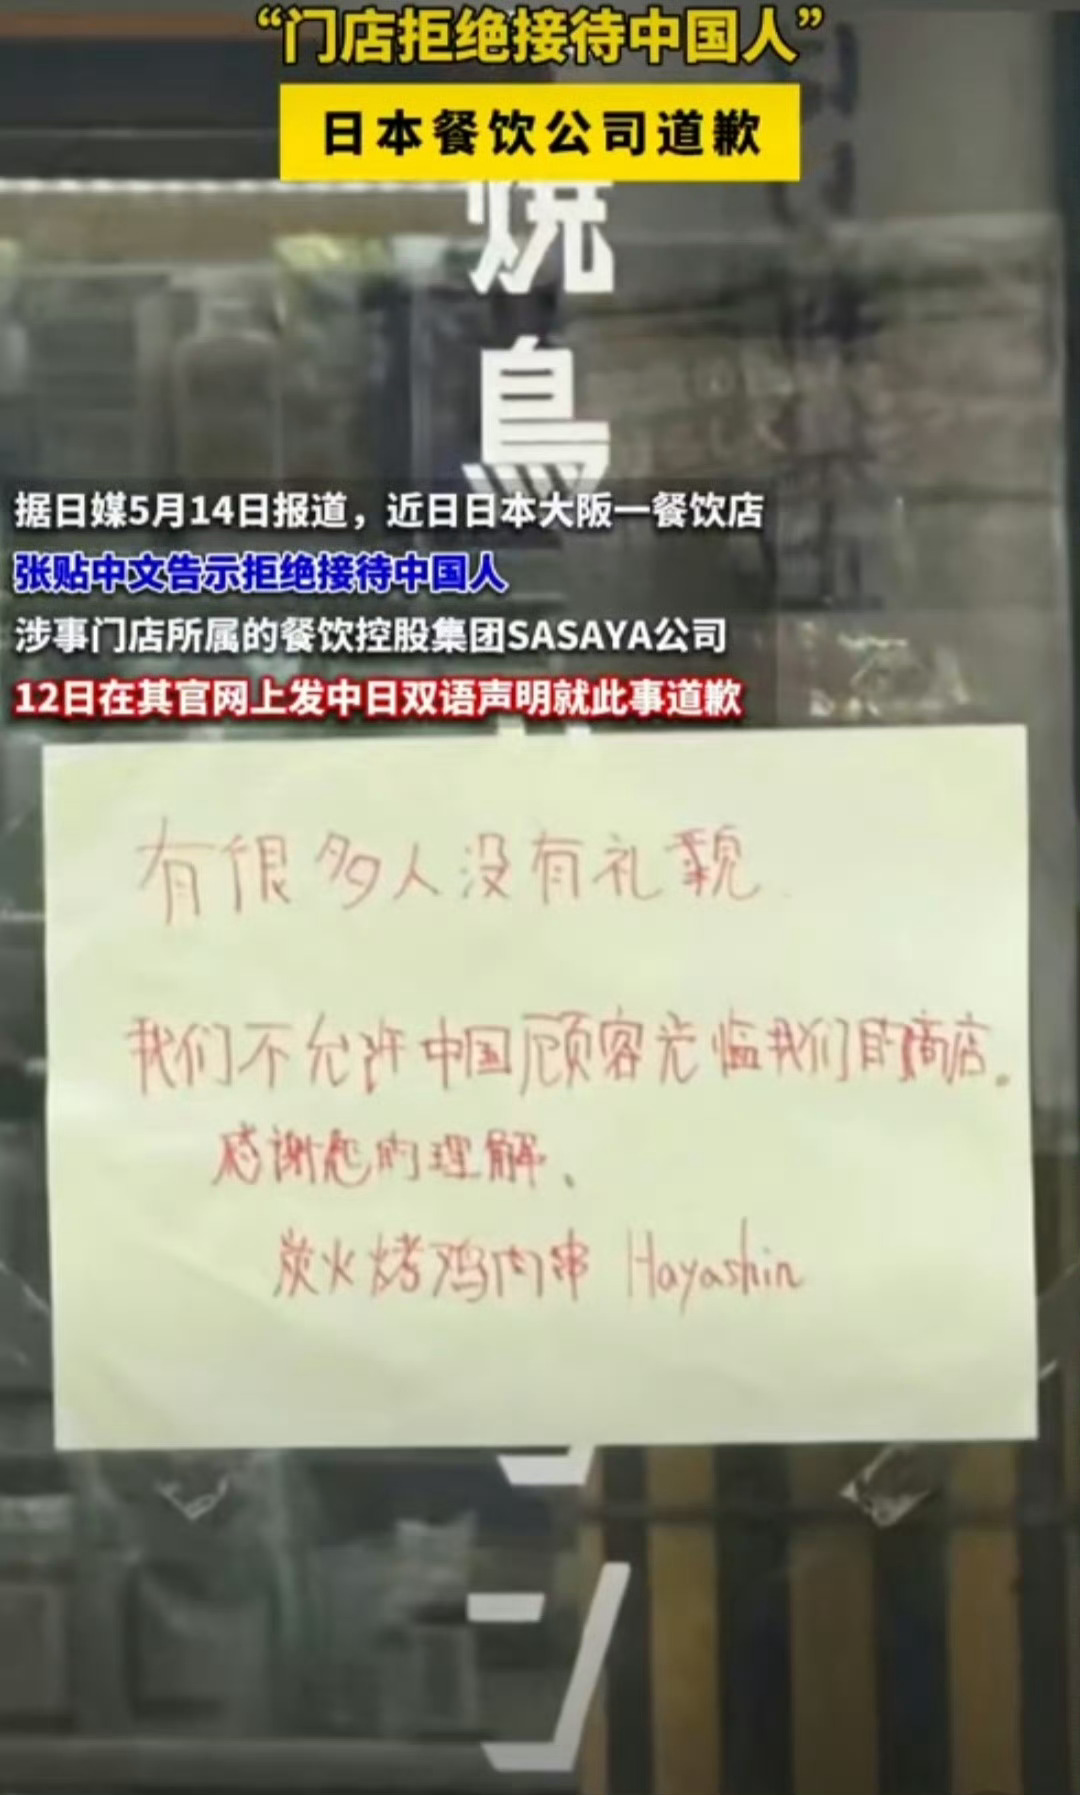 “门店拒绝接待中国人”
日本餐饮公司道歉
焼
鳥
据日媒5月14日报道，近日日本大阪一餐饮店
张贴中文告示拒绝接待中国人
涉事门店所属的餐饮控股集团SASAYA公司
12日在其官网上发中日双语声明就此事道歉
有很多人没有礼貌
我们不允许中国顾客光临我们的商店。
感谢您的理解、
炭火烤鸡肉串 Hayashin
ン